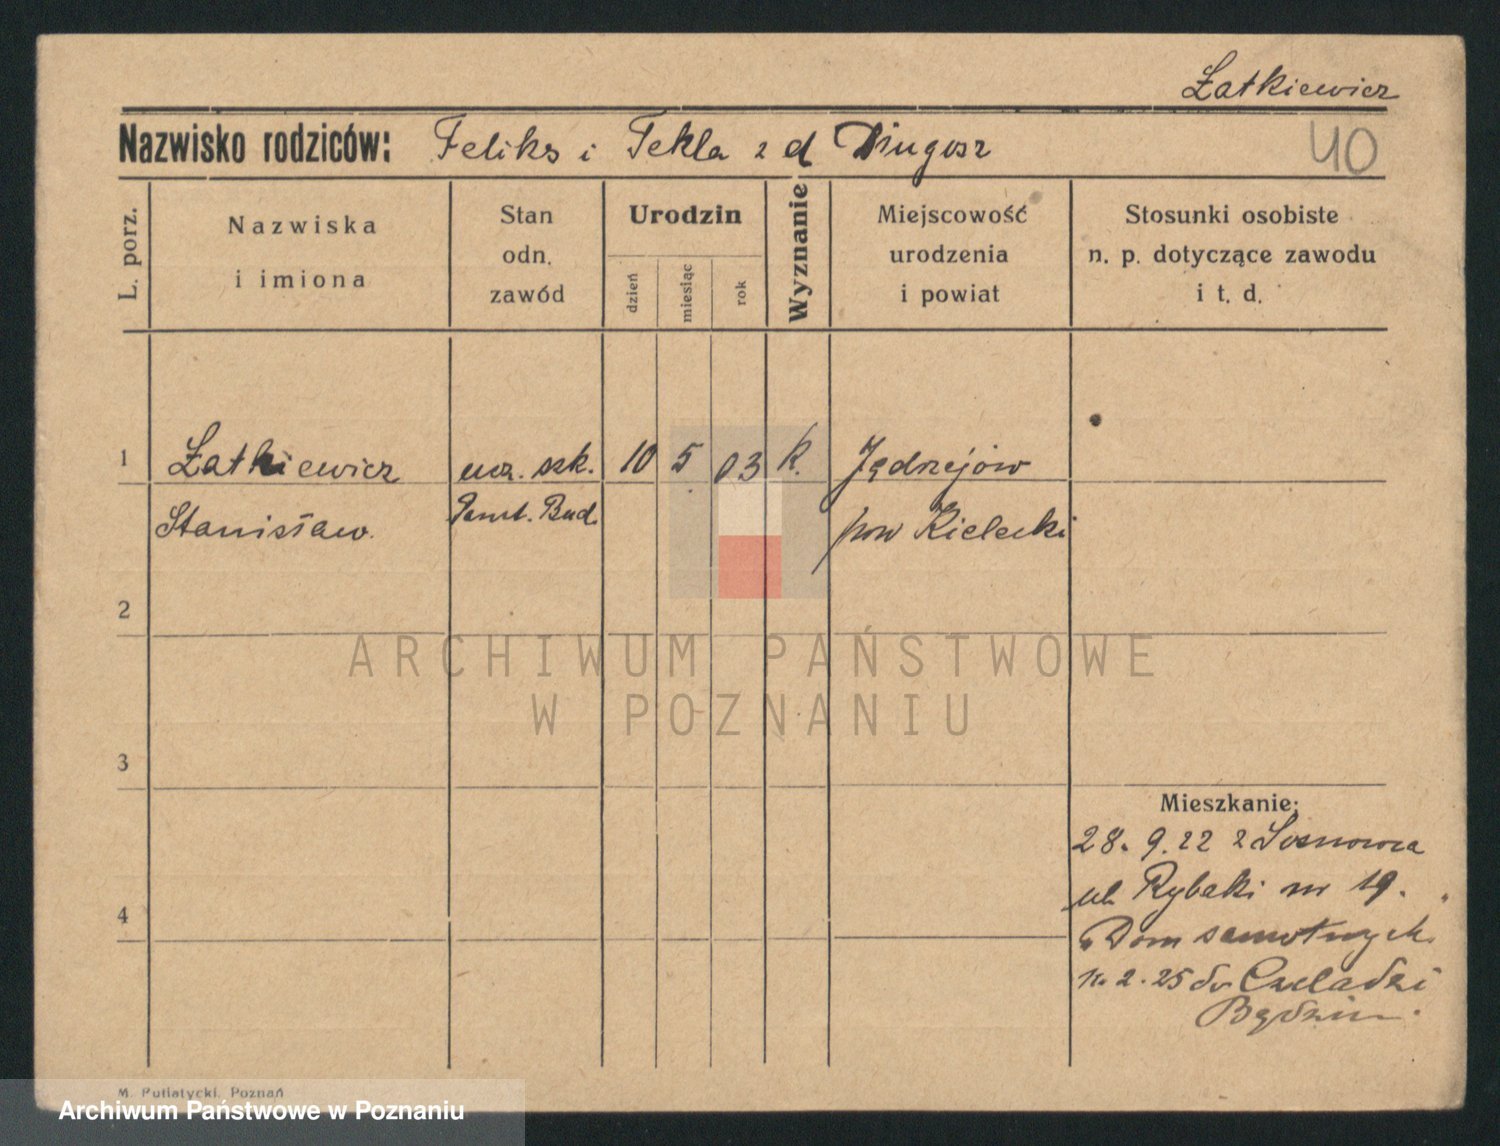 Łatkiewicz
Nazwisko rodziców: Feliks i Tekla z d Długosz
40
L. porz.
Nazwiska
i imiona
Stan
odn.
zawód
Urodzin
dzień
miesiąc
rok
Wyznanie
Miejscowość
urodzenia
i powiat
Stosunki osobiste
n. p. dotyczące zawodu
i t. d.
1 Łatkiewicz ucz. szk. 10 5 03 k. Jędrzejów
Stanisław. Bud. pow Kielecki
2
ARCHIWUM PAŃSTWOWE
W POZNANIU
3
Mieszkanie:
28. 9. 22 z Sosnowca
ul. Rybaki nr 19.
4
"Dom samotnych
2. 25 do Czeladzi
Będzin.
M. Putiatycki, Poznań
Archiwum Państwowe w Poznaniu